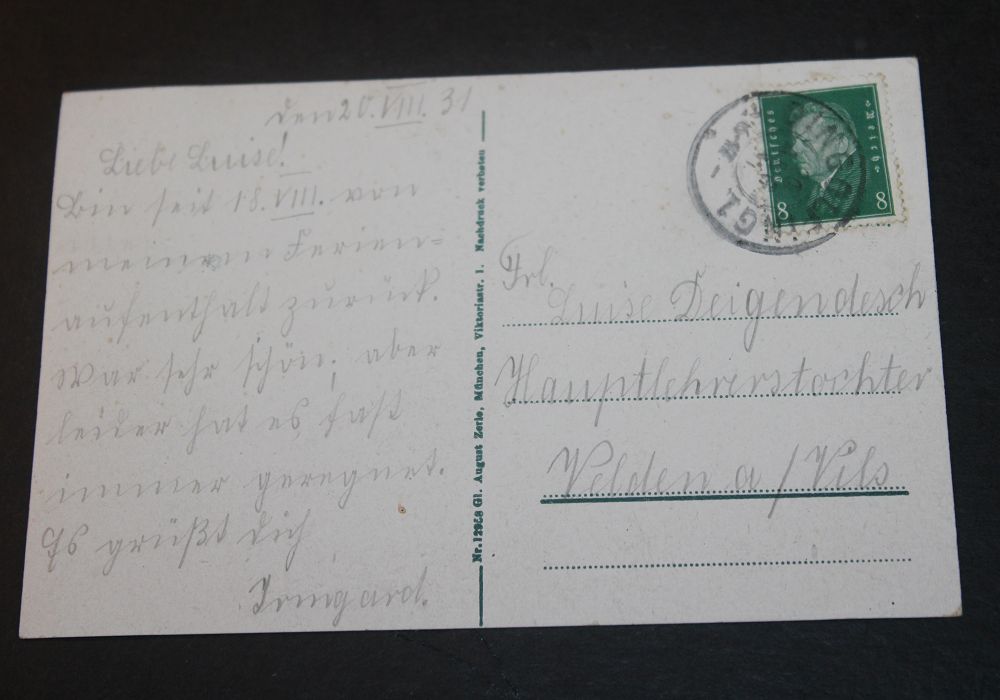 den 20.VIII.31
Liebe Luise!
Bin seit 18.VIII. von
meinem Ferien=
aufenthalt zurück.
War sehr schön, aber
leider hat es fast
immer geregnet.
Es grüßt dich
Irmgard.
Nr.12958 Gl. August Zerle, München, Viktoriastr. 1. Nachdruck verboten
Deutsches Reich
8 8
Frl.
Luise Deigendesch
Hauptlehrerstochter
Velden a/Vils